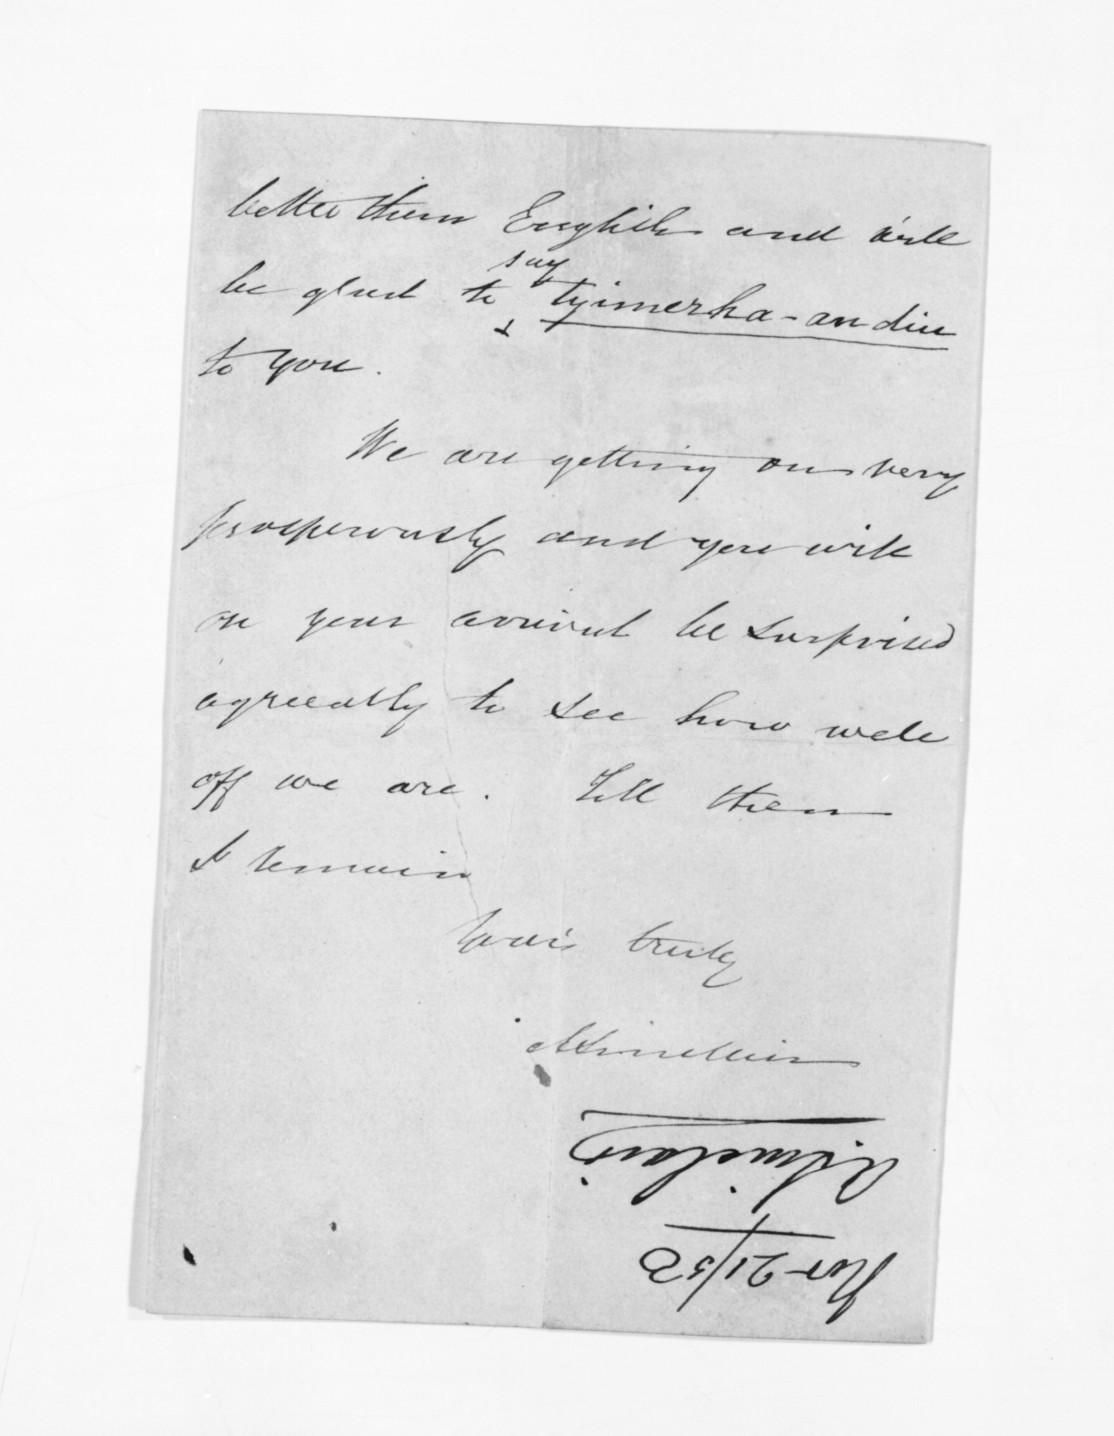 better than English and will
be glad to say tyimerha-andiu
to you.
We are getting on very
prosperously and you will
on your arrival be surprised
agreeably to see how well
off we are. Till then
I remain
Yours truly
A Sinclair
A. Sinclair
Nov 21/52